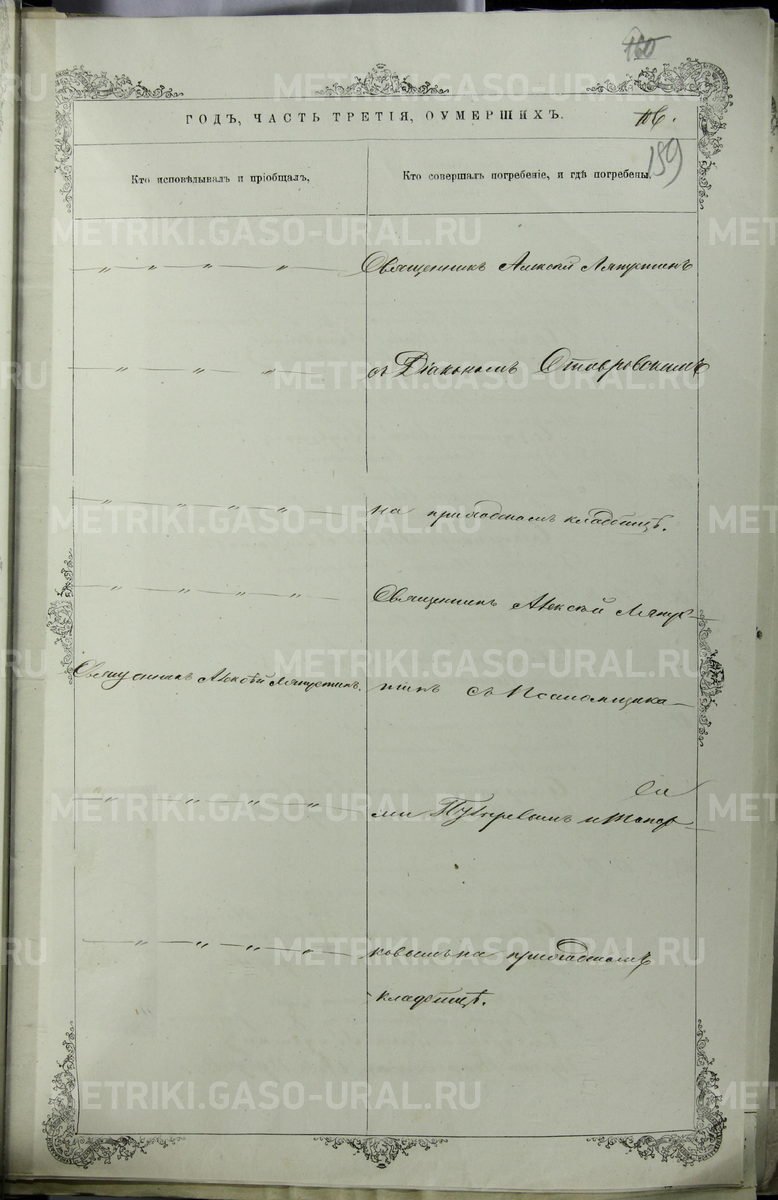 160
ГОДЪ, ЧАСТЬ ТРЕТІЯ, О УМЕРШИХЪ.
159
Кто исповѣдывалъ и пріобщалъ.
Кто совершалъ погребеніе, и гдѣ погребены.
— " — " — " — " —
Священникъ Алексѣй Ляпустинъ
— " — " — " —
съ Діакономъ Ставровскимъ
— " — " — " — " —
на приходскомъ кладбищѣ.
— " — " — " — " —
Священникъ Алексѣй Ляпус-
Священникъ Алексѣй Ляпустинъ.
тинъ съ Псаломщика-
— " — " — " — " —
ми и
— " — " — " — " —
на приходскомъ
кладбищѣ.
METRIKI.GASO-URAL.RU